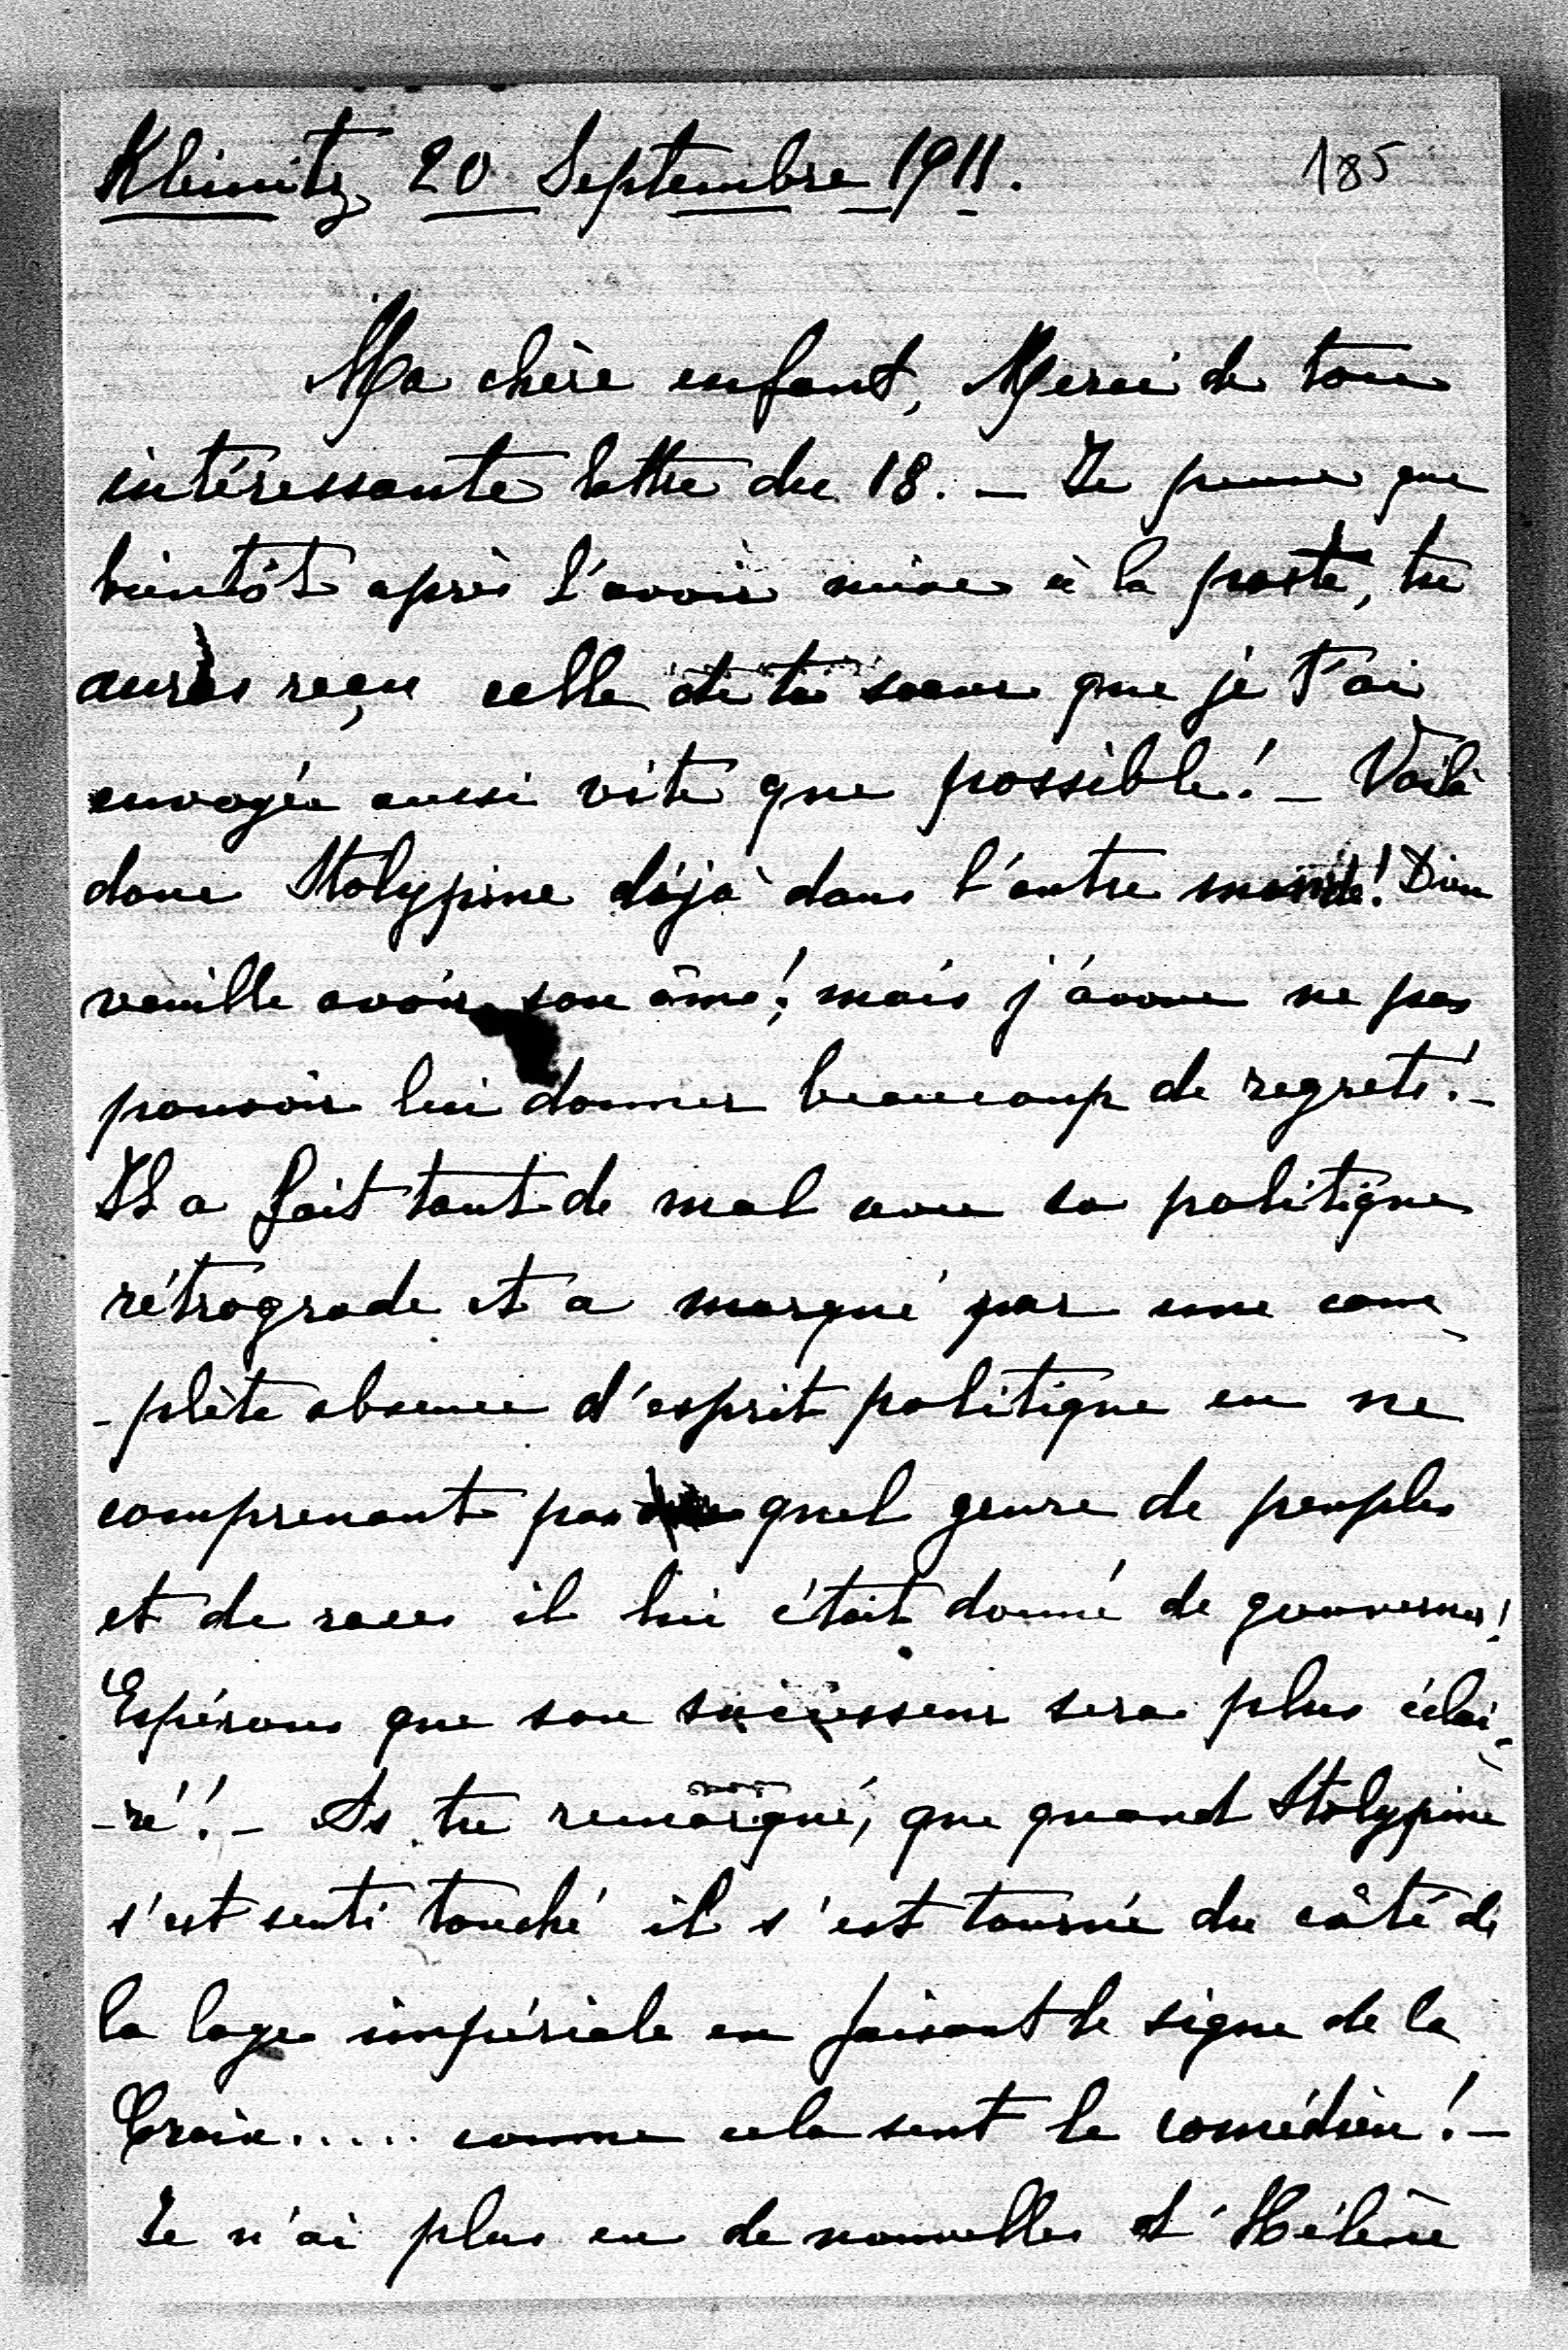 Kleinitz 20 Septembre 1911. 185
Ma chère enfant, Merci de ton
intéressante lettre du 18. – Je pense que
bientôt après l'avoir mise à la poste, tu
auras reçu celle de ta soeur que je t'ai
envoyée aussi vite que possible! – Voilà
donc Stolypine déjà dans l'autre monde! Dieu
veuille avoir son âme! mais j'avoue ne pas
pouvoir lui donner beaucoup de regrets! –
Il a fait tant de mal avec sa politique
rétrograde et a marqué par une com-
-plète absence d'esprit politique en ne
comprenant pas quel genre de peuples
et de races il lui était donné de gouverner!
Espérons que son successeur sera plus éclai-
-ré! – As tu remarqué, que quand Stolypine
s'est senti touché il s'est tourné du côté de
la loge impériale en faisant le signe de la
Croix..... comme cela sent le comédien! –
Je n'ai plus eu de nouvelles d'Hélène